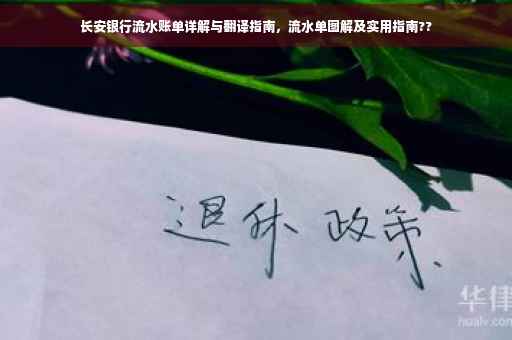 长安银行流水账单详解与翻译指南，流水单图解及实用指南??
退休 政策
华律
hualv.com